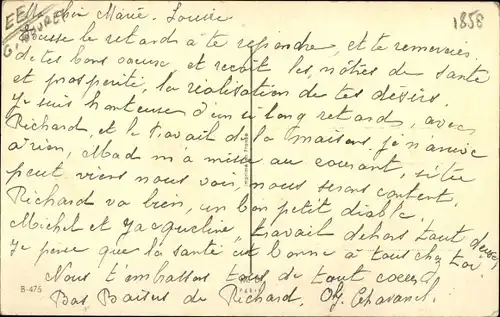 EE
G. BOUREL
1858
Ma chère Marie-Louise
Excuse le retard à te repondre, et te remercier
de tes bons voeux, et reçoit les nôtres de santé
et prosperité, la réalisation de tes désirs.
Je suis honteuse d'un si long retard, avec
Richard, et le travail de la maison je n'arrive
a rien, Mad m'a mise au courant, si tu
peut viens nous voir, nous serons content,
Richard va bien, un bon petit diable,
Michel et Jacqueline, travail dehors tout deux,
Je pense que la santé est bonne à tous chez toi.
Nous t'embrassons tous de tout coeur
Bos Baises de Richard, Chavanel.
B-475
Imprimé en France
PARIS